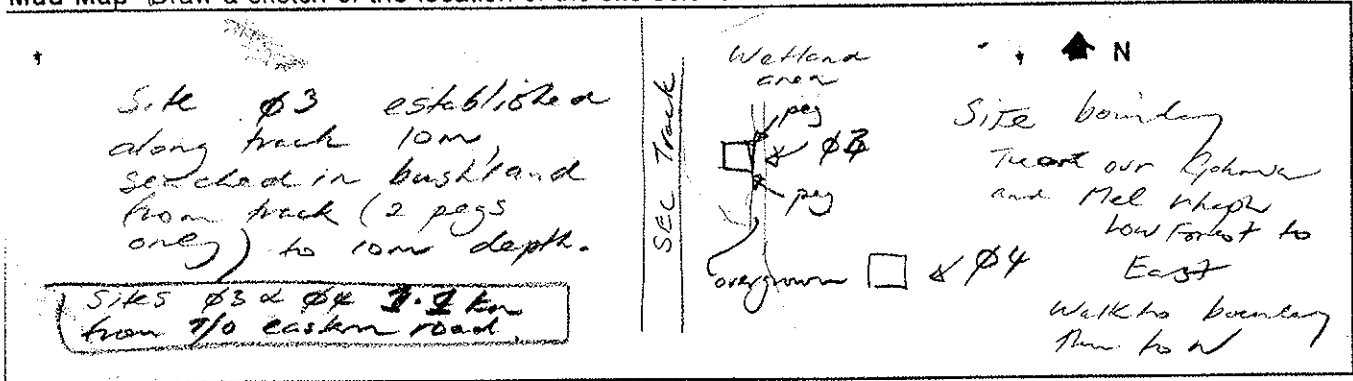 Mud Map Draw a sketch of the location of the site
Site ø3 established
along track 10m,
searched in bushland
from track (2 pegs
only) to 10m depth.
Sites ø3 & ø4
from T/O eastern road.
SEC Track
Wetland
area
peg
peg
overgrown
ø4
N
Site boundary
our
and Mel rhaph
Low Forest to
East
Walk to boundary
then to N